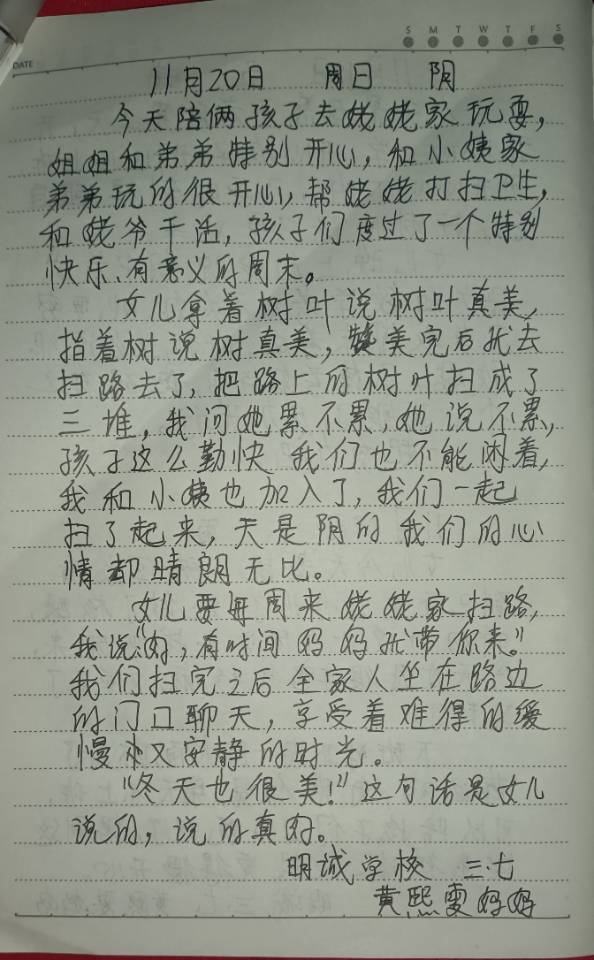 S M T W T F S
DATE:
11月20日 周日 阴
今天陪俩孩子去姥姥家玩耍,
姐姐和弟弟特别开心,和小姨家
弟弟玩的很开心,帮姥姥打扫卫生,
和姥爷干活,孩子们度过了一个特别
快乐、有意义的周末。
女儿拿着树叶说树叶真美,
指着树说树真美,赞美完后就去
扫路去了,把路上的树叶扫成了
三堆,我问她累不累,她说不累,
孩子这么勤快 我们也不能闲着,
我和小姨也加入了,我们一起
扫了起来,天是阴的 我们的心
情却晴朗无比。
女儿要每周来姥姥家扫路,
我说:"好,有时间妈妈就带你来。"
我们扫完之后全家人坐在路边
的门口聊天,享受着难得的缓
慢 又安静的时光。
"冬天也很美!"这句话是女儿
说的,说的真好。
明诚学校 三·七
黄熙雯妈妈